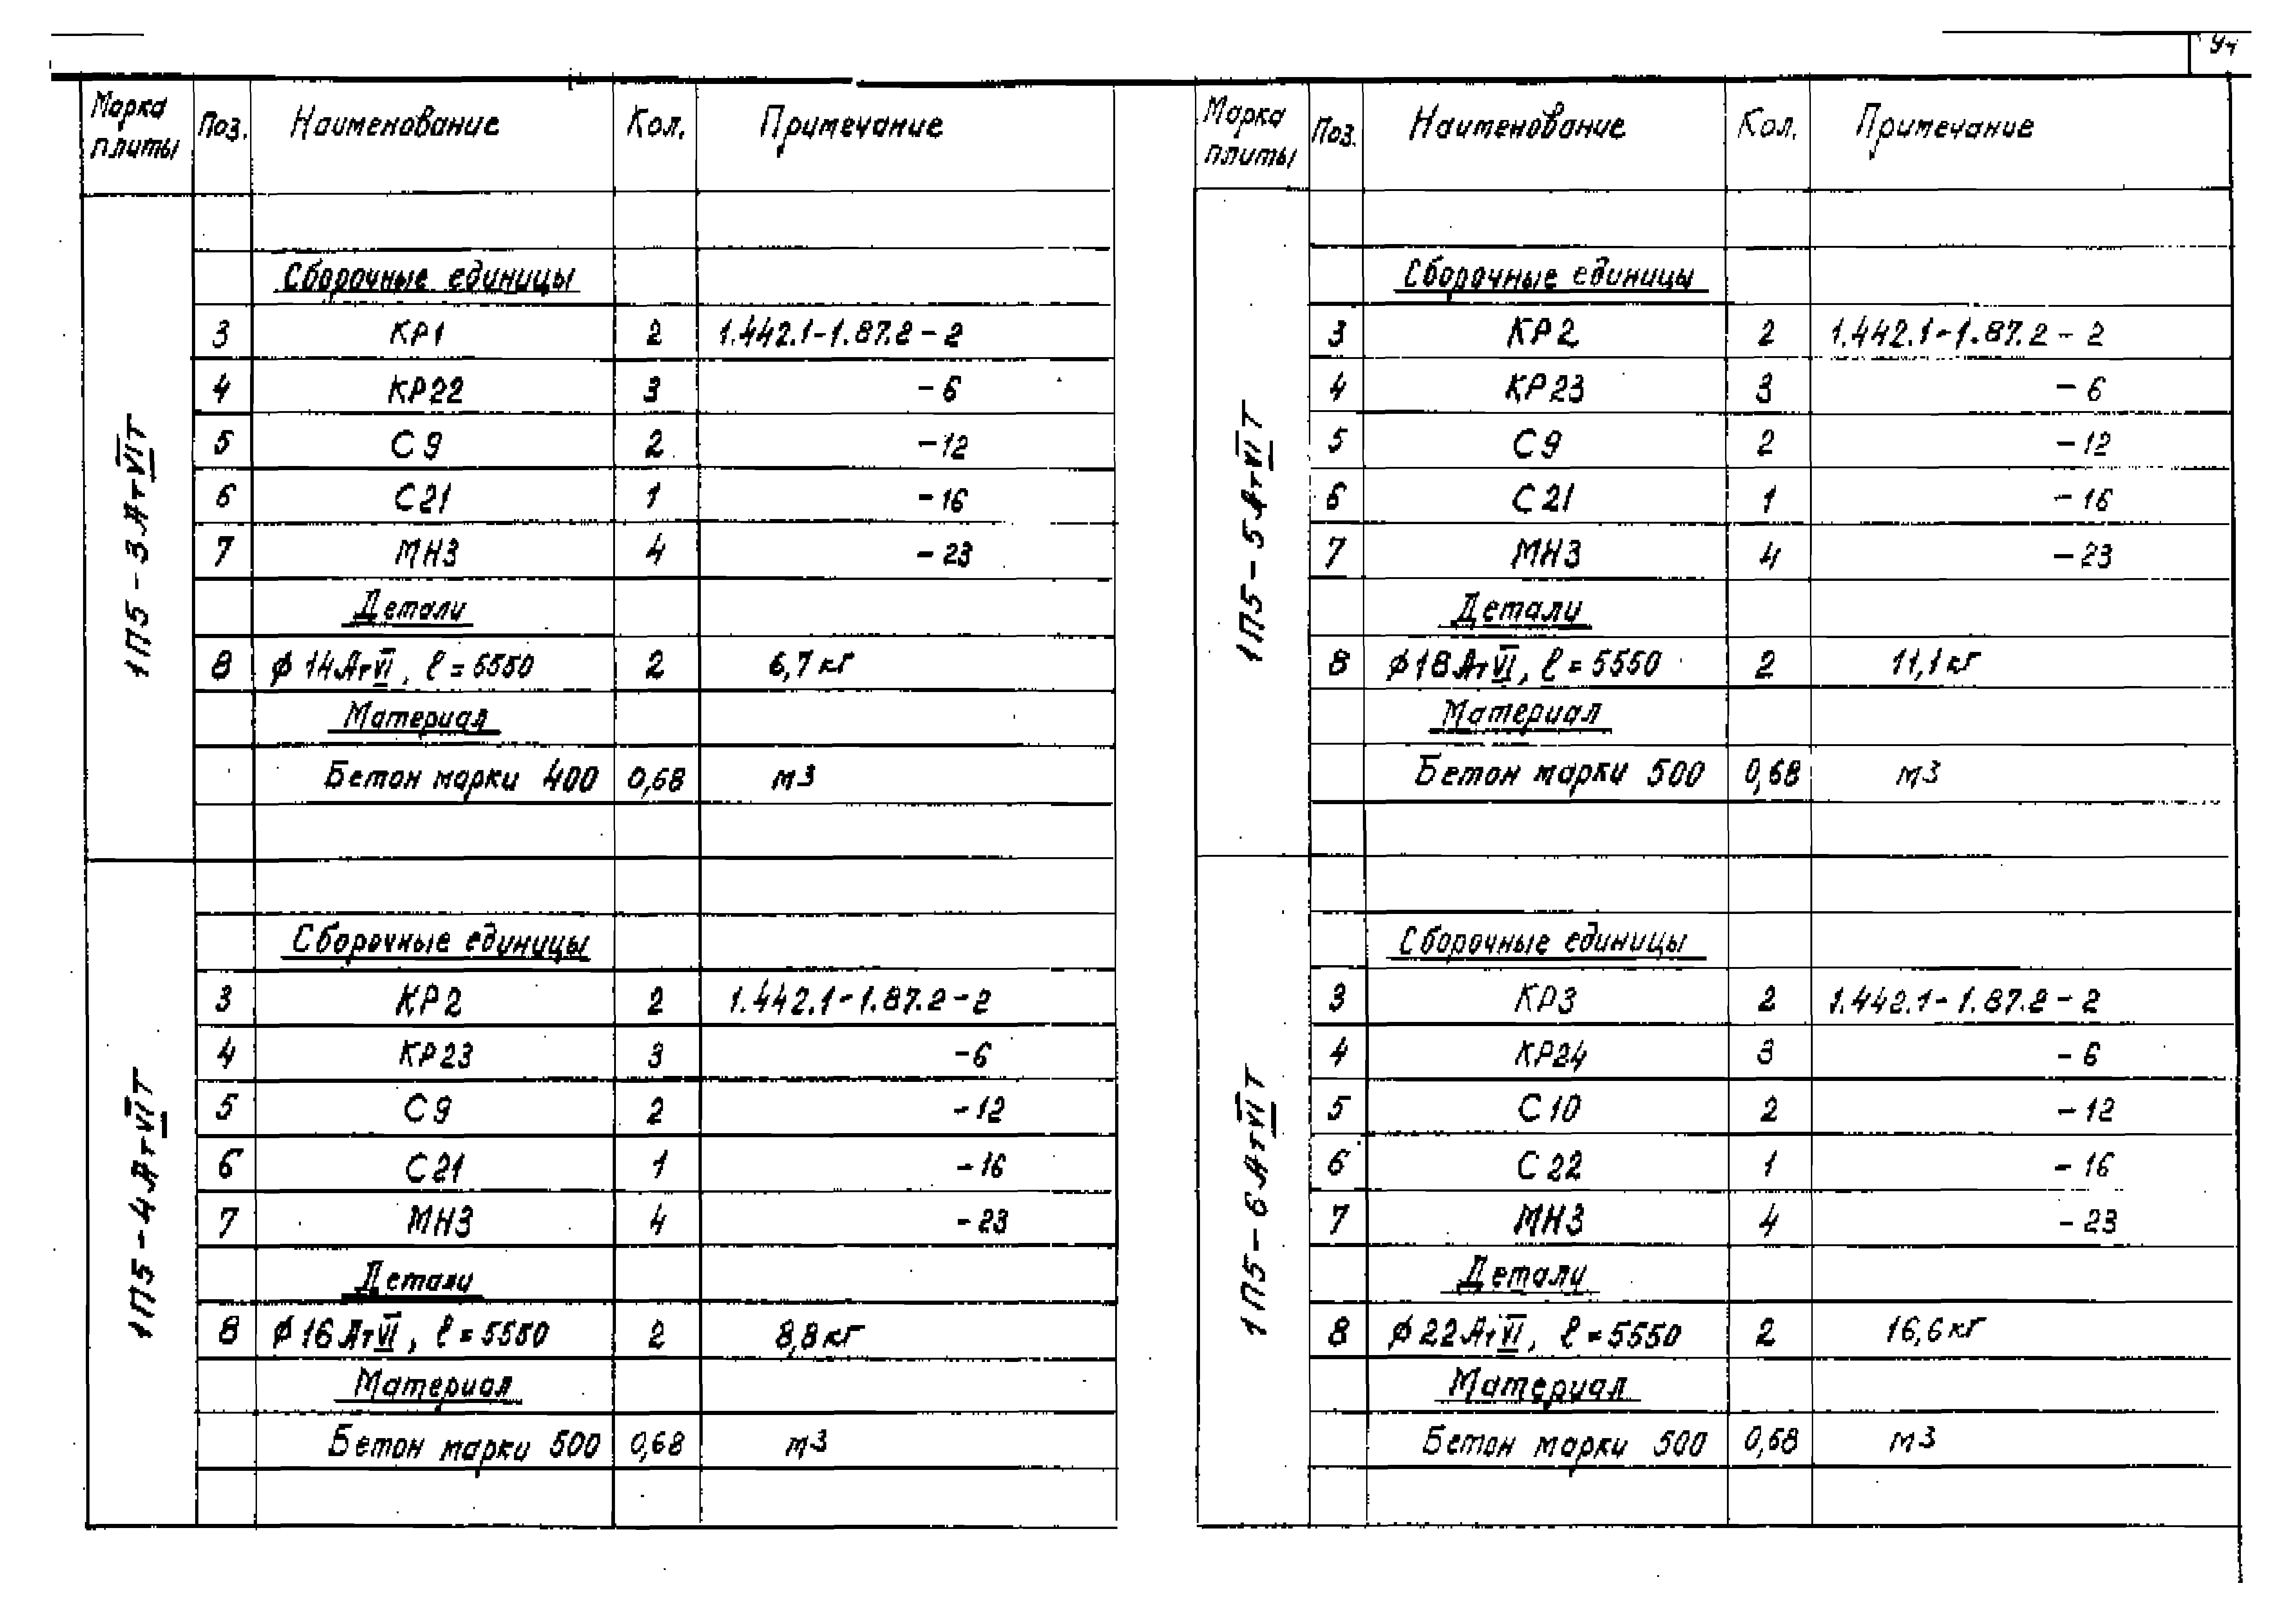 Марка плиты Поз. Наименование Кол. Примечание
1П5-3АтVIТ
Сборочные единицы
3 КР1 2 1.442.1-1.87.2-2
4 КР22 3 -6
5 С9 2 -12
6 С21 1 -16
7 МН3 4 -23
Детали
8 ϕ14АтVI, ℓ=5550 2 6,7кг
Материал
Бетон марки 400 0,68 м3
1П5-4АтVIТ
Сборочные единицы
3 КР2 2 1.442.1-1.87.2-2
4 КР23 3 -6
5 С9 2 -12
6 С21 1 -16
7 МН3 4 -23
Детали
8 ϕ16АтVI, ℓ=5550 2 8,8кг
Материал
Бетон марки 500 0,68 м3
Марка плиты Поз. Наименование Кол. Примечание
1П5-5АтVIТ
Сборочные единицы
3 КР2 2 1.442.1-1.87.2-2
4 КР23 3 -6
5 С9 2 -12
6 С21 1 -16
7 МН3 4 -23
Детали
8 ϕ18АтVI, ℓ=5550 2 11,1кг
Материал
Бетон марки 500 0,68 м3
1П5-6АтVIТ
Сборочные единицы
3 КР3 2 1.442.1-1.87.2-2
4 КР24 3 -6
5 С10 2 -12
6 С22 1 -16
7 МН3 4 -23
Детали
8 ϕ22АтVI, ℓ=5550 2 16,6кг
Материал
Бетон марки 500 0,68 м3